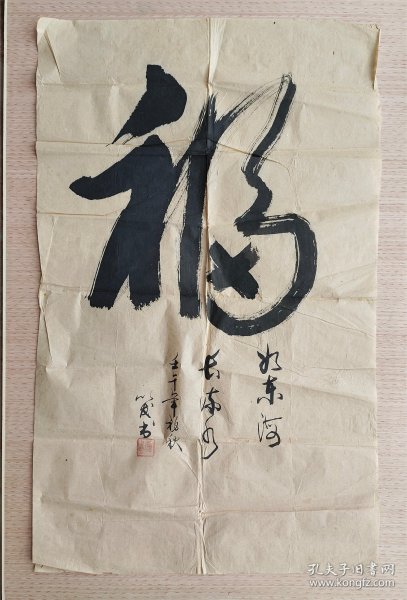 福
如东海
长流水
壬午年
书
孔夫子旧书网
www.kongfz.com